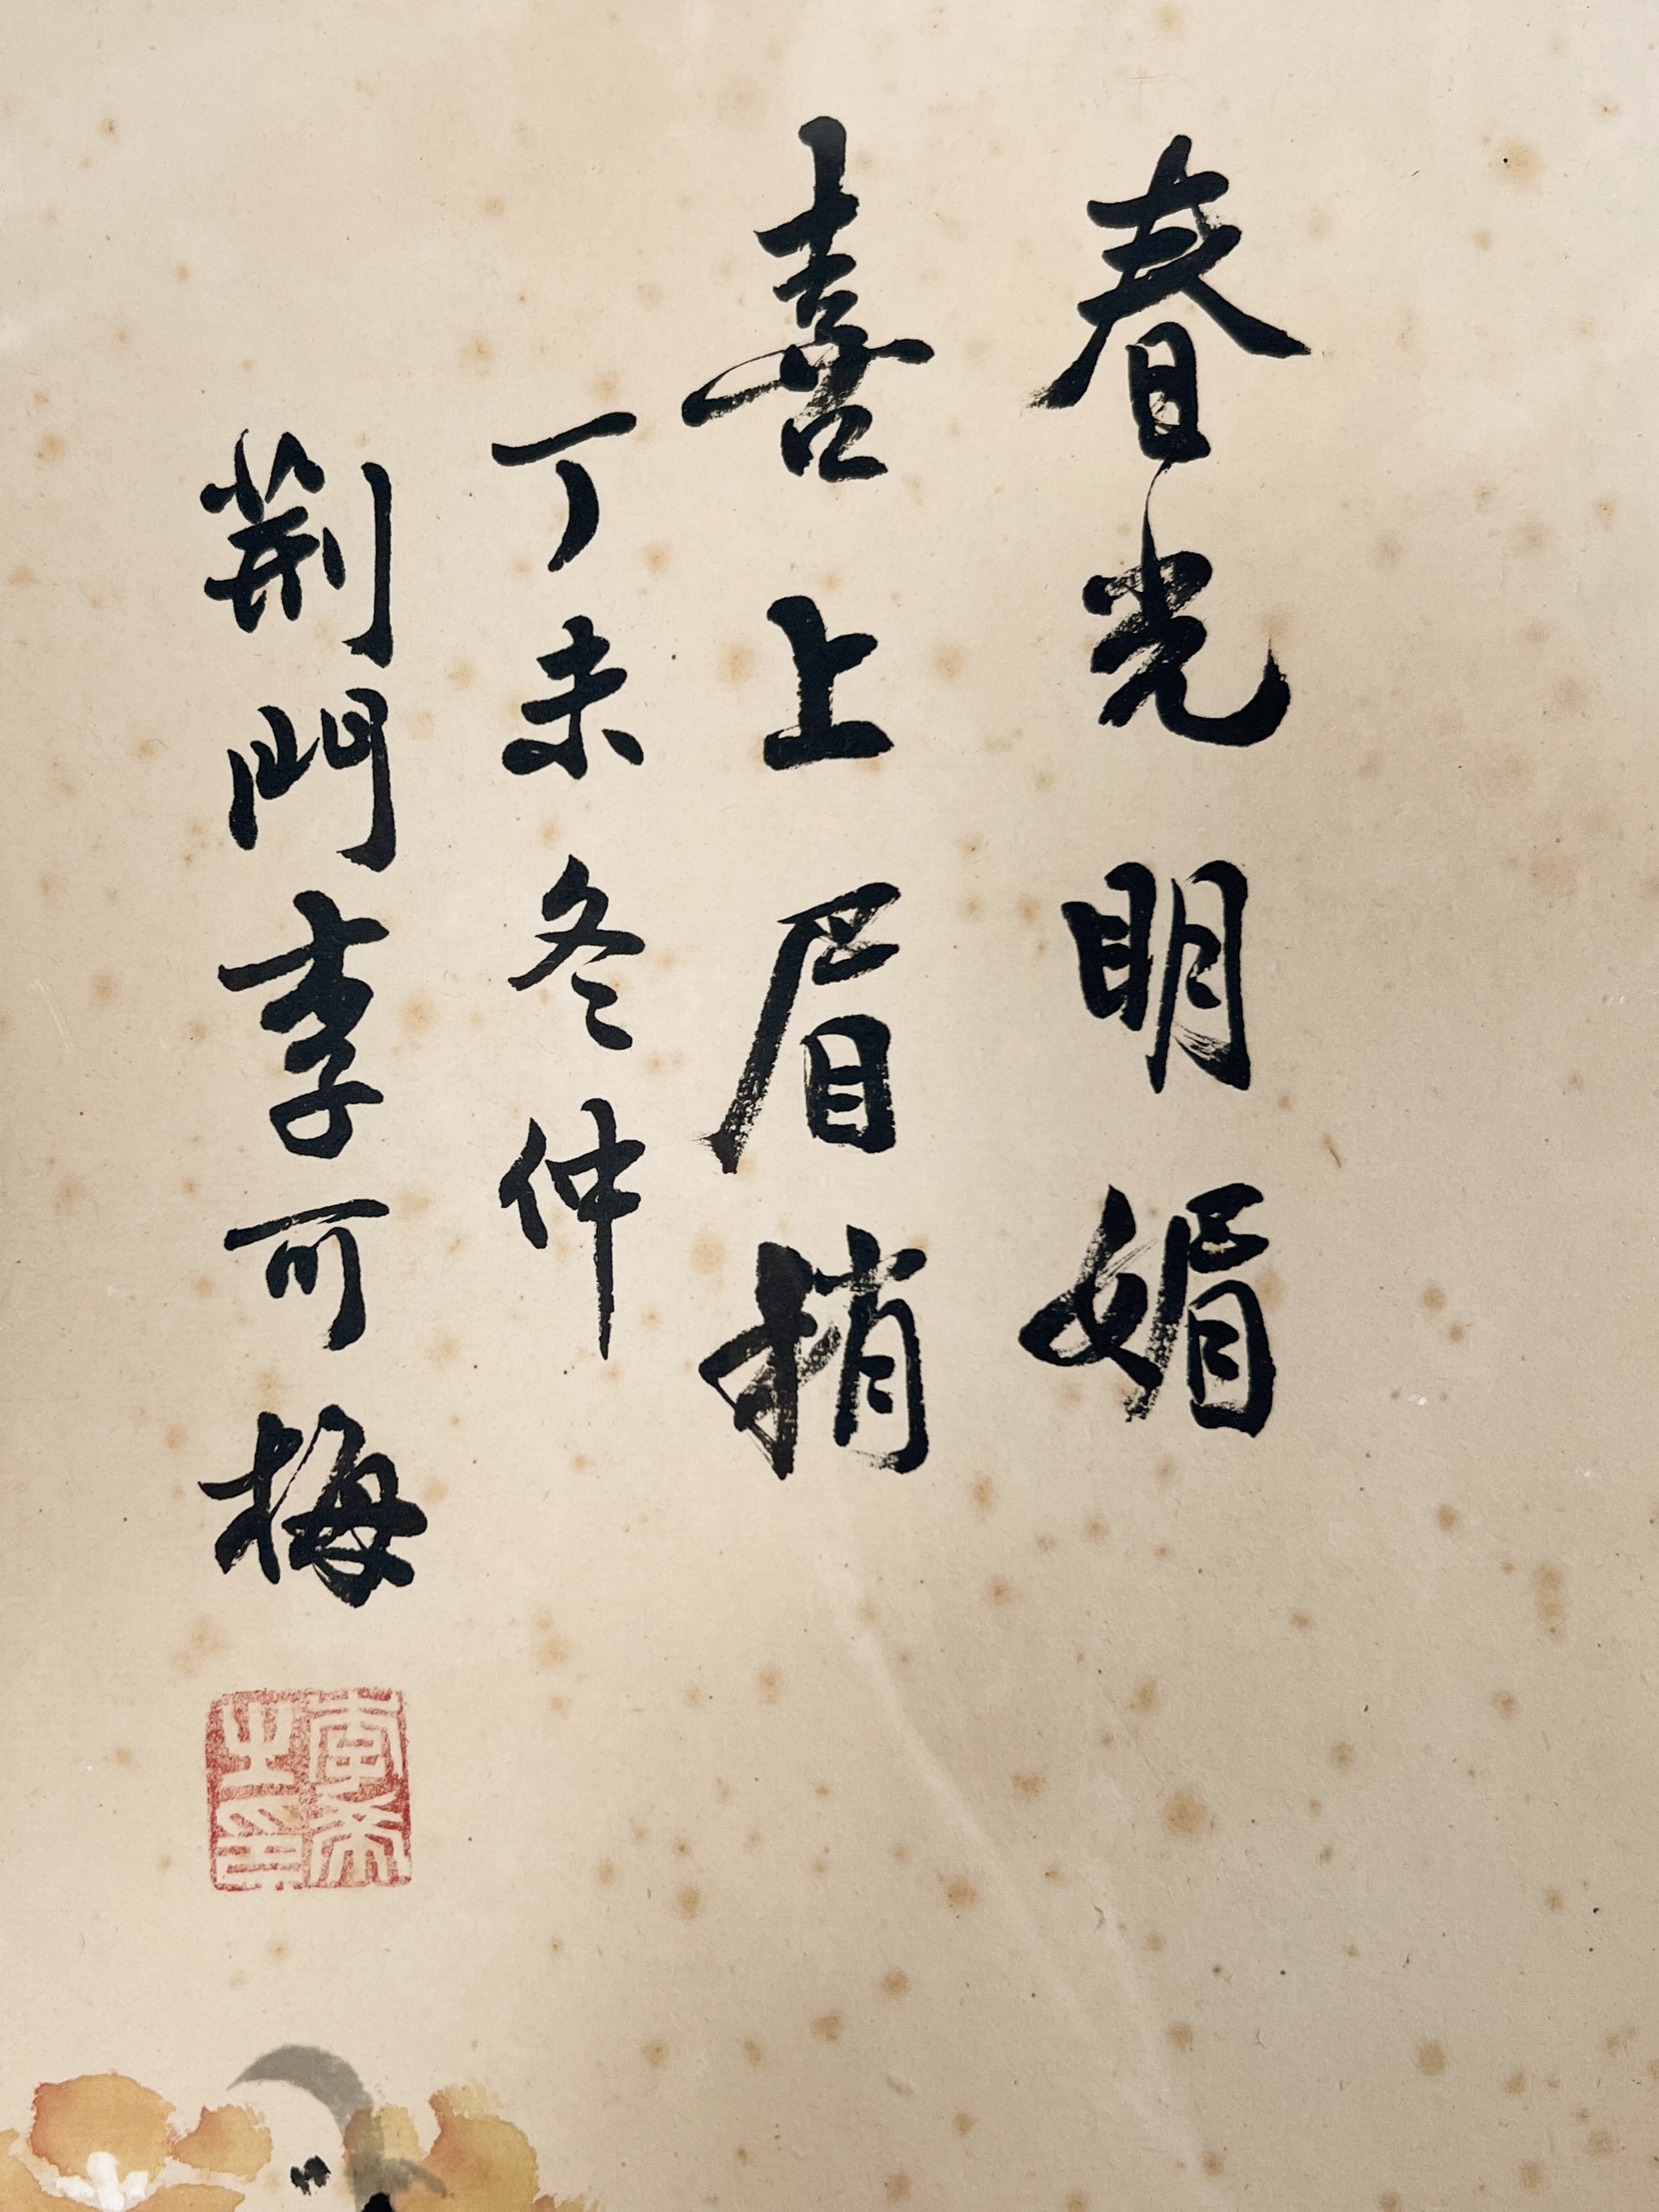 春光明媚
喜上眉梢
丁未冬仲
荆門李可梅